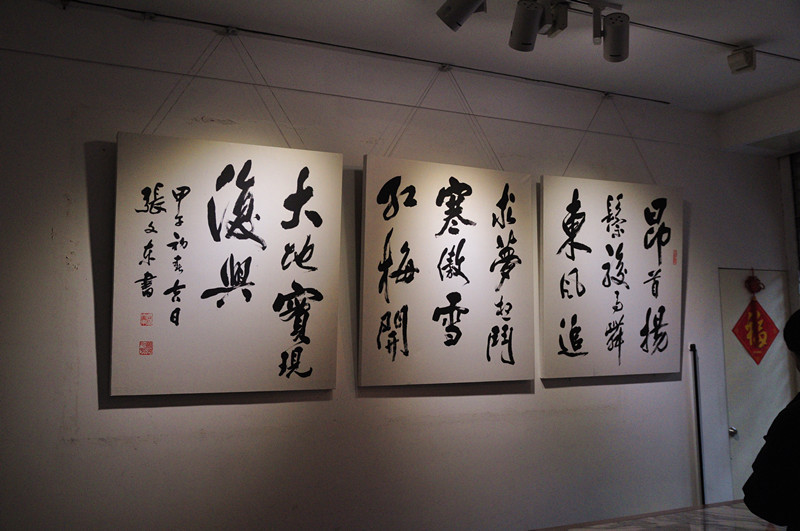 昂首揚
鬃駿馬舞
東風追
求夢想鬥
寒傲雪
紅梅開
大地實現
復興
甲午初春吉日
張文东書
福